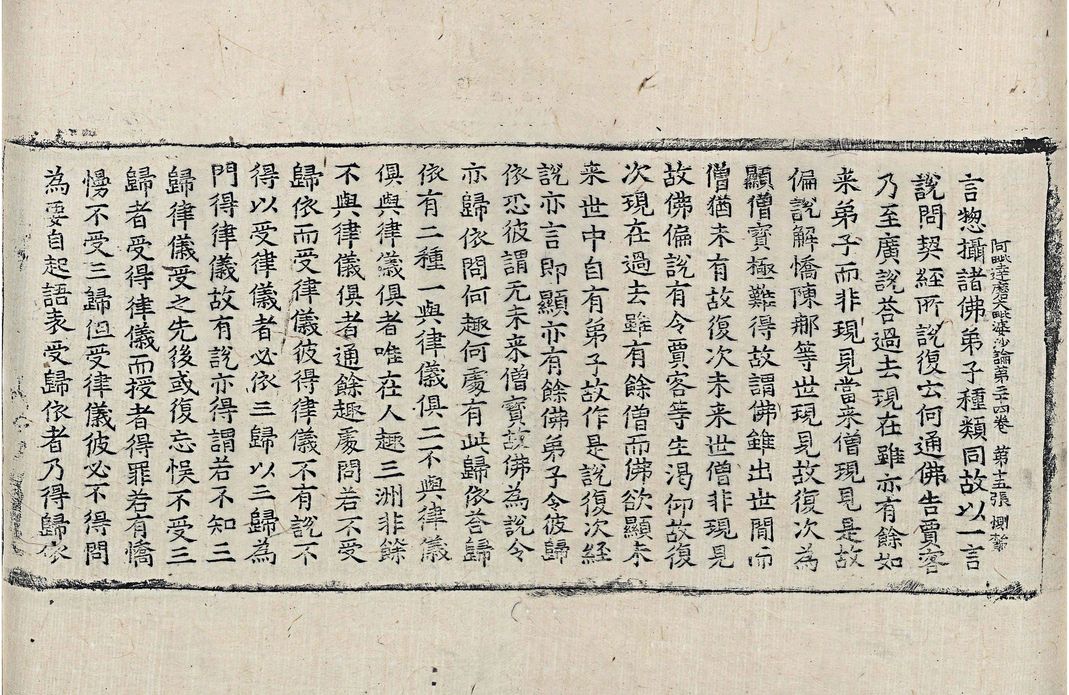 阿毗達磨大毗婆沙論第三十四卷 第十五張 惻
言惣攝諸佛弟子種類同故以一言
說問契經所說復云何通佛告賈客
乃至廣說荅過去現在雖亦有餘如
来弟子而非現見當来僧現見是故
偏說解憍陳那等世現見故復次為
顯僧寶極難得故謂佛雖出世閒而
僧猶未有故復次未来世僧非現見
故佛偏說有令賈客等生渴仰故復
次現在過去雖有餘僧而佛欲顯未
来世中自有弟子故作是說復次經
說亦言即顯亦有餘佛弟子令彼歸
依恐彼謂无未来僧寶故佛為說令
亦歸依問何趣何處有此歸依荅歸
依有二種一與律儀俱二不與律儀
俱與律儀俱者唯在人趣三洲非餘
不與律儀俱者通餘趣處問若不受
歸依而受律儀彼得律儀不有說不
得以受律儀者必依三歸以三歸為
門得律儀故有說亦得謂若不知三
歸律儀受之先後或復忘悮不受三
歸者受得律儀而授者得罪若有憍
慢不受三歸但受律儀彼必不得問
為要自起語表受歸依者乃得歸依